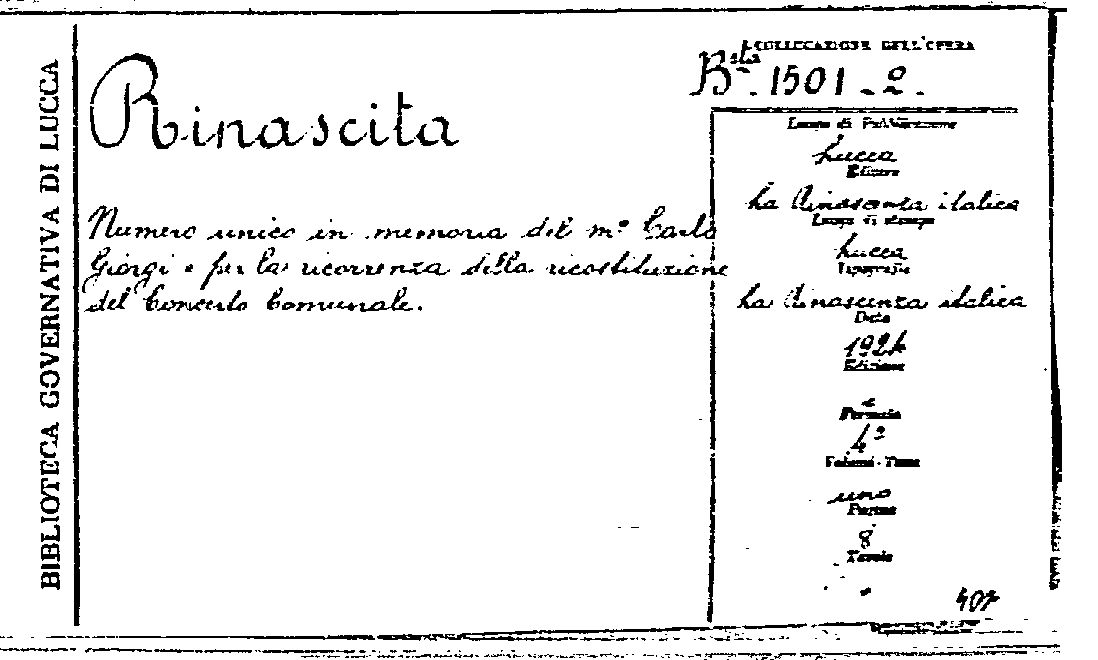 BIBLIOTECA GOVERNATIVA DI LUCCA
Rinascita
Numero unico in memoria del m° Carlo
Giorgi e per la ricorrenza della ricostituzione
del Concerto Comunale.
COLLOCAZIONE DELL'OPERA
Bta. 1501-2.
Luogo di Pubblicazione
Lucca
Editore
La Rinascenza italica
Luogo di stampa
Lucca
Tipografia
La Rinascenza italica
Data
1924
Edizione
Formato
4°
Volumi - Tomi
uno
Pagine
8
Tavole